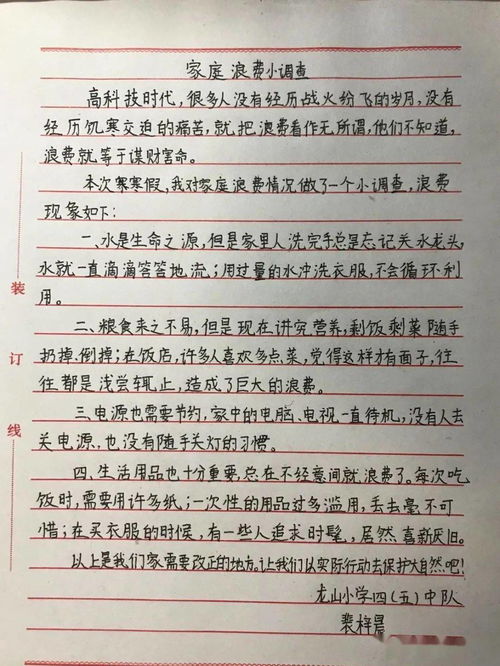 家庭浪费小调查
高科技时代,很多人没有经历战火纷飞的岁月,没有
经历饥寒交迫的痛苦,就把浪费看作无所谓,他们不知道,
浪费就等于谋财害命。
本次寒寒假,我对家庭浪费情况做了一个小调查,浪费
现象如下:
一、水是生命之源,但是家里人洗完手总是忘记关水龙头,
水就一直滴滴答答地流;用过量的水冲洗衣服,不会循环利
用。
二、粮食来之不易,但是现在讲究营养,剩饭剩菜随手
扔掉、倒掉;在饭店,许多人喜欢多点菜,觉得这样才有面子,往
往都是浅尝辄止,造成了巨大的浪费。
三、电源也需要节约,家中的电脑、电视一直待机,没有人去
关电源,也没有随手关灯的习惯。
四、生活用品也十分重要,总在不经意间就浪费了。每次吃
饭时,需要用许多纸;一次性的用品过多滥用,丢去毫不可
惜;在买衣服的时候,有一些人追求时髦,居然喜新厌旧。
以上是我们家需要改正的地方。让我们以实际行动去保护大自然吧!
龙山小学四(五)中队
裴梓晨
装
订
线